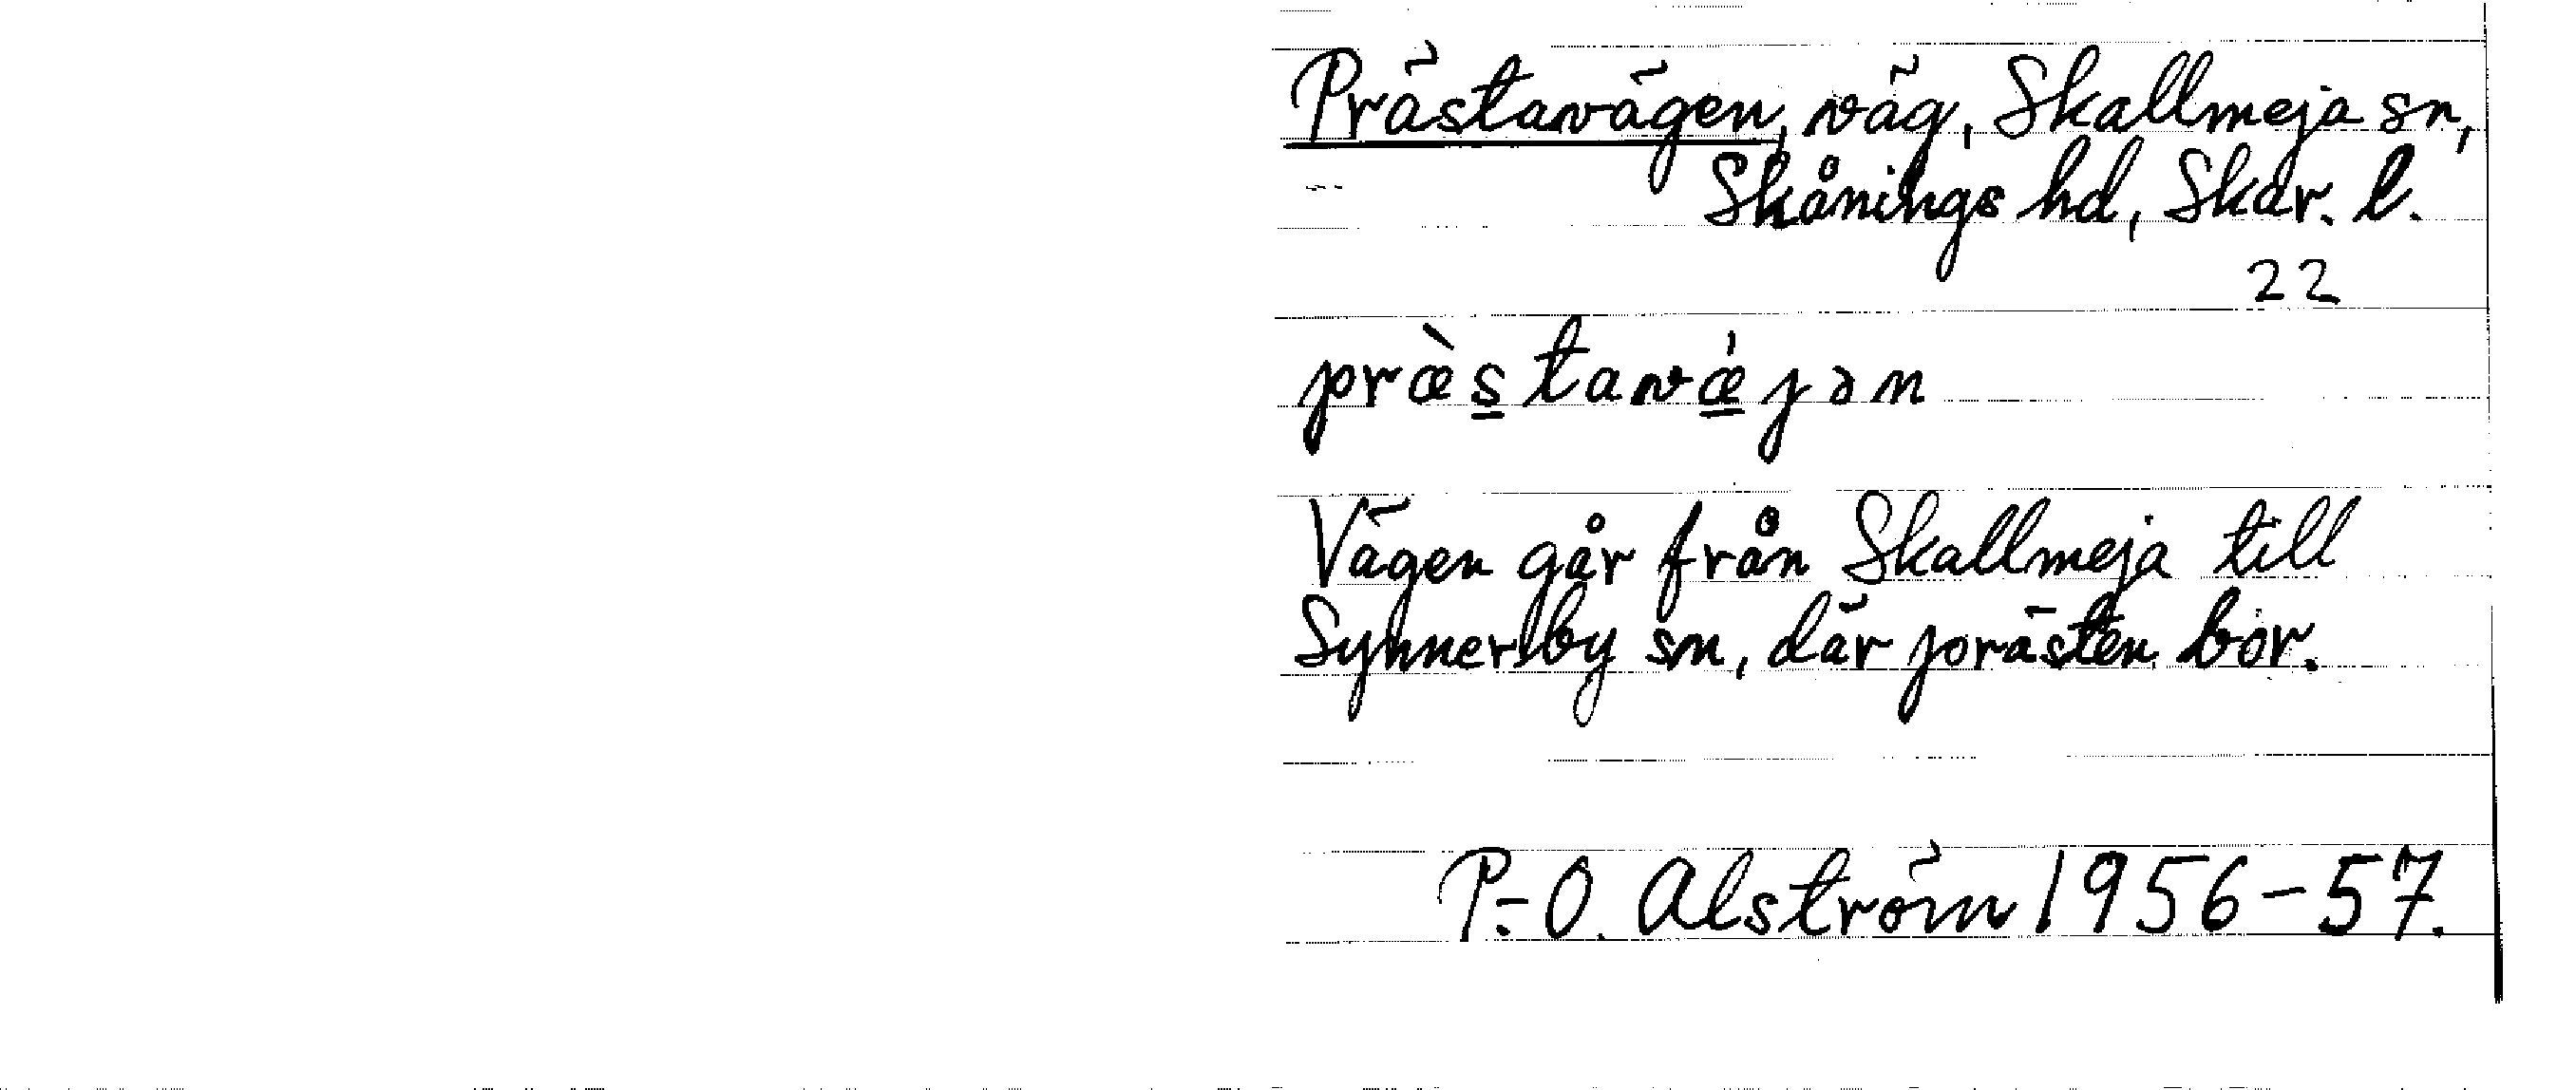 Prästavägen, väg, Skallmeja sn,
Skånings hd, Skar. l.
22
præ̀stavǽjən
Vägen går från Skallmeja till
Synnerby sn, där prästen bor.
P.-O. Alström 1956-57.